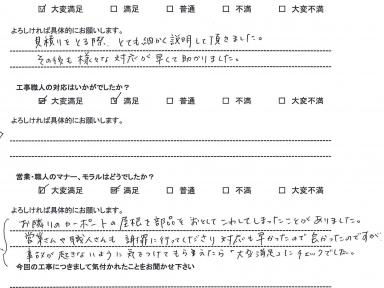 ☑ 大変満足 ☐ 満足 ☐ 普通 ☐ 不満 ☐ 大変不満
よろしければ具体的にお願いします。
見積りをとる際、とても細かく説明して頂きました。
その後も様々な対応が早くて助かりました。
工事職人の対応はいかがでしたか？
☑ 大変満足 ☑ 満足 ☐ 普通 ☐ 不満 ☐ 大変不満
よろしければ具体的にお願いします。
営業・職人のマナー、モラルはどうでしたか？
☑ 大変満足 ☑ 満足 ☐ 普通 ☐ 不満 ☐ 大変不満
よろしければ具体的にお願いします。
お隣りのカーポートの屋根を部品をおとしてこわしてしまったことがありました。
営業さんや職人さんも謝罪に行ってくださり対応も早かったので良かったのですが、
事故が起きないように気をつけてもらえたら"大変満足"にチェックでした。
今回の工事につきまして気付かれたことをお聞かせ下さい